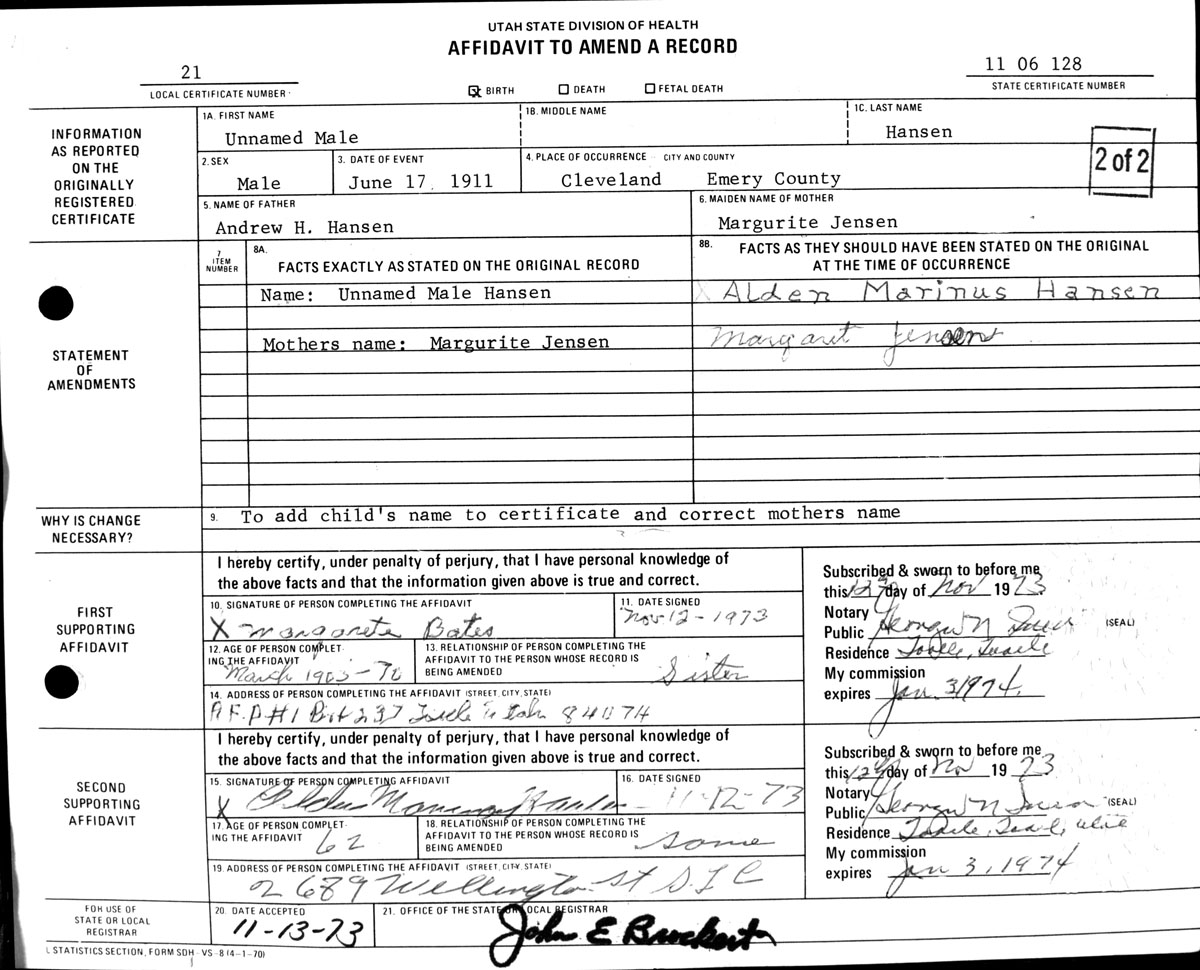 UTAH STATE DIVISION OF HEALTH
AFFIDAVIT TO AMEND A RECORD
21
LOCAL CERTIFICATE NUMBER
BIRTH DEATH FETAL DEATH
11 06 128
STATE CERTIFICATE NUMBER
INFORMATION AS REPORTED ON THE ORIGINALLY REGISTERED CERTIFICATE
1A. FIRST NAME 1B. MIDDLE NAME 1C. LAST NAME
Unnamed Male Hansen
2 of 2
2. SEX 3. DATE OF EVENT 4. PLACE OF OCCURRENCE CITY AND COUNTY
Male June 17, 1911 Cleveland Emery County
5. NAME OF FATHER 6. MAIDEN NAME OF MOTHER
Andrew H. Hansen Margurite Jensen
STATEMENT OF AMENDMENTS
7 ITEM NUMBER
8A. FACTS EXACTLY AS STATED ON THE ORIGINAL RECORD
8B. FACTS AS THEY SHOULD HAVE BEEN STATED ON THE ORIGINAL
AT THE TIME OF OCCURRENCE
Name: Unnamed Male Hansen X Alden Marinus Hansen
Mothers name: Margurite Jensen Margaret
WHY IS CHANGE NECESSARY?
9. To add child's name to certificate and correct mothers name
FIRST SUPPORTING AFFIDAVIT
I hereby certify, under penalty of perjury, that I have personal knowledge of
the above facts and that the information given above is true and correct.
10. SIGNATURE OF PERSON COMPLETING THE AFFIDAVIT 11. DATE SIGNED
X Margarete Bates Nov-12-1973
12. AGE OF PERSON COMPLETING THE AFFIDAVIT
March 1903-70
13. RELATIONSHIP OF PERSON COMPLETING THE AFFIDAVIT TO THE PERSON WHOSE RECORD IS BEING AMENDED
Sister
14. ADDRESS OF PERSON COMPLETING THE AFFIDAVIT (STREET, CITY, STATE)
R.F.D #1 Box 237 Tooele Utah 84074
Subscribed & sworn to before me
this 12 day of Nov 1973
Notary
Public (SEAL)
Residence Tooele, Tooele
My commission
expires Jan 3, 1974.
SECOND SUPPORTING AFFIDAVIT
I hereby certify, under penalty of perjury, that I have personal knowledge of
the above facts and that the information given above is true and correct.
15. SIGNATURE OF PERSON COMPLETING AFFIDAVIT 16. DATE SIGNED
X Alden Marinus Hansen 11-12-73
17. AGE OF PERSON COMPLETING THE AFFIDAVIT
62
18. RELATIONSHIP OF PERSON COMPLETING THE AFFIDAVIT TO THE PERSON WHOSE RECORD IS BEING AMENDED
Same
19. ADDRESS OF PERSON COMPLETING THE AFFIDAVIT (STREET, CITY, STATE)
2689 Wellington St S L C
Subscribed & sworn to before me
this 12 day of Nov 1973
Notary
Public (SEAL)
Residence Tooele, Tooele, Utah
My commission
expires Jan 3, 1974
FOR USE OF STATE OR LOCAL REGISTRAR
20. DATE ACCEPTED 21. OFFICE OF THE STATE OR LOCAL REGISTRAR
11-13-73 John E Brockert
L STATISTICS SECTION, FORM SDH-VS-8 (4-1-70)